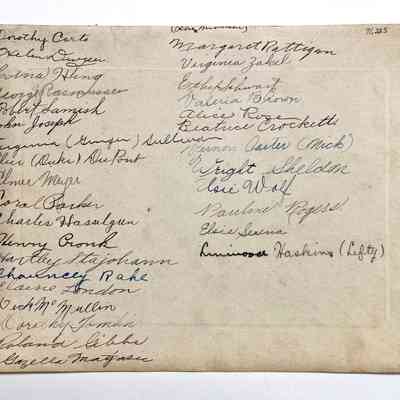 Dorothy Carts
Helen Dwyer
Irena Hing
George Rasmussen
Robert Samish
John Joseph
Virginia (Ginger) Sullivan
(Duke) DuPont
Elmer Meyer
Coral Parker
Charles Hasulgren
Henry Cronk
Hartley Stajohann
Chauncey Rahe
Elaine London
Dick McMullin
Dorothy Timan
Roland Gibbs
Gazella Magassee
Margaret Rattigan
Virginia Zakel
Valeria Brown
Alice Rose
Beatrice Crocketts
Vernon Carter (Mick)
Wright Sheldon
Elsie Wolf
Pauline Rogers
Elsie Serena
Linwood Haskins (Lefty)